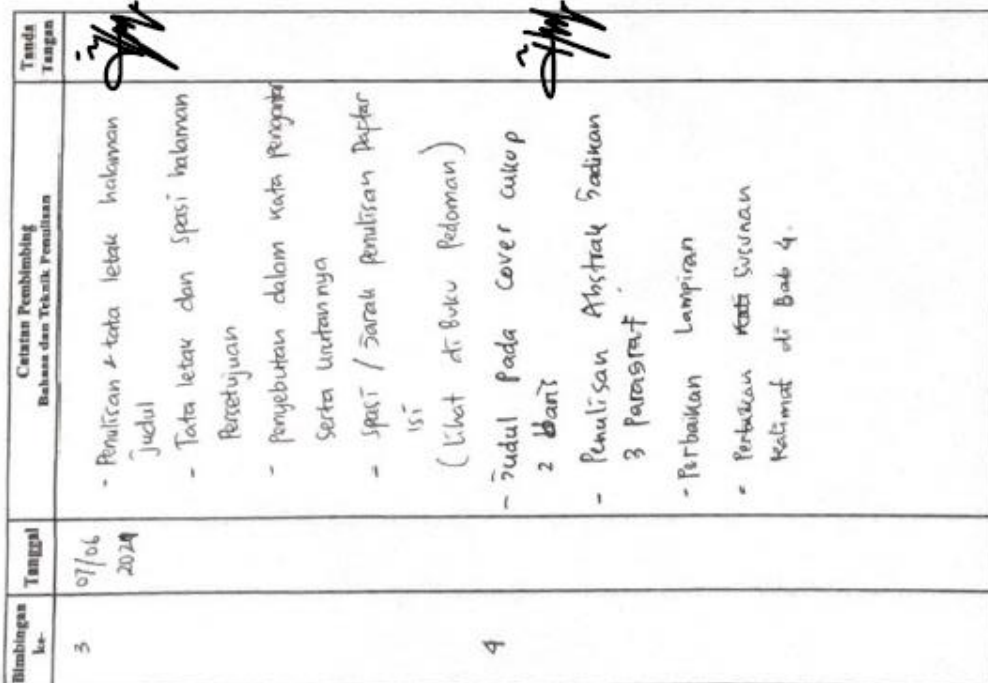 Bimbingan ke-
Tanggal
Catatan Pembimbing
Bahasa dan Teknik Penulisan
Tanda Tangan
3
07/06
2024
- Penulisan & tata letak halaman
judul
- Tata letak dan spasi halaman
Persetujuan
- Penyebutan dalam kata pengantar
serta urutannya
- spasi / Jarak penulisan Daftar
isi
(Lihat di Buku Pedoman)
4
- Judul pada cover cukup
2 baris
- Penulisan Abstrak Jadikan
3 Paragraf
- Perbaikan Lampiran
- Perbaikan susunan
Kalimat di Bab 4.